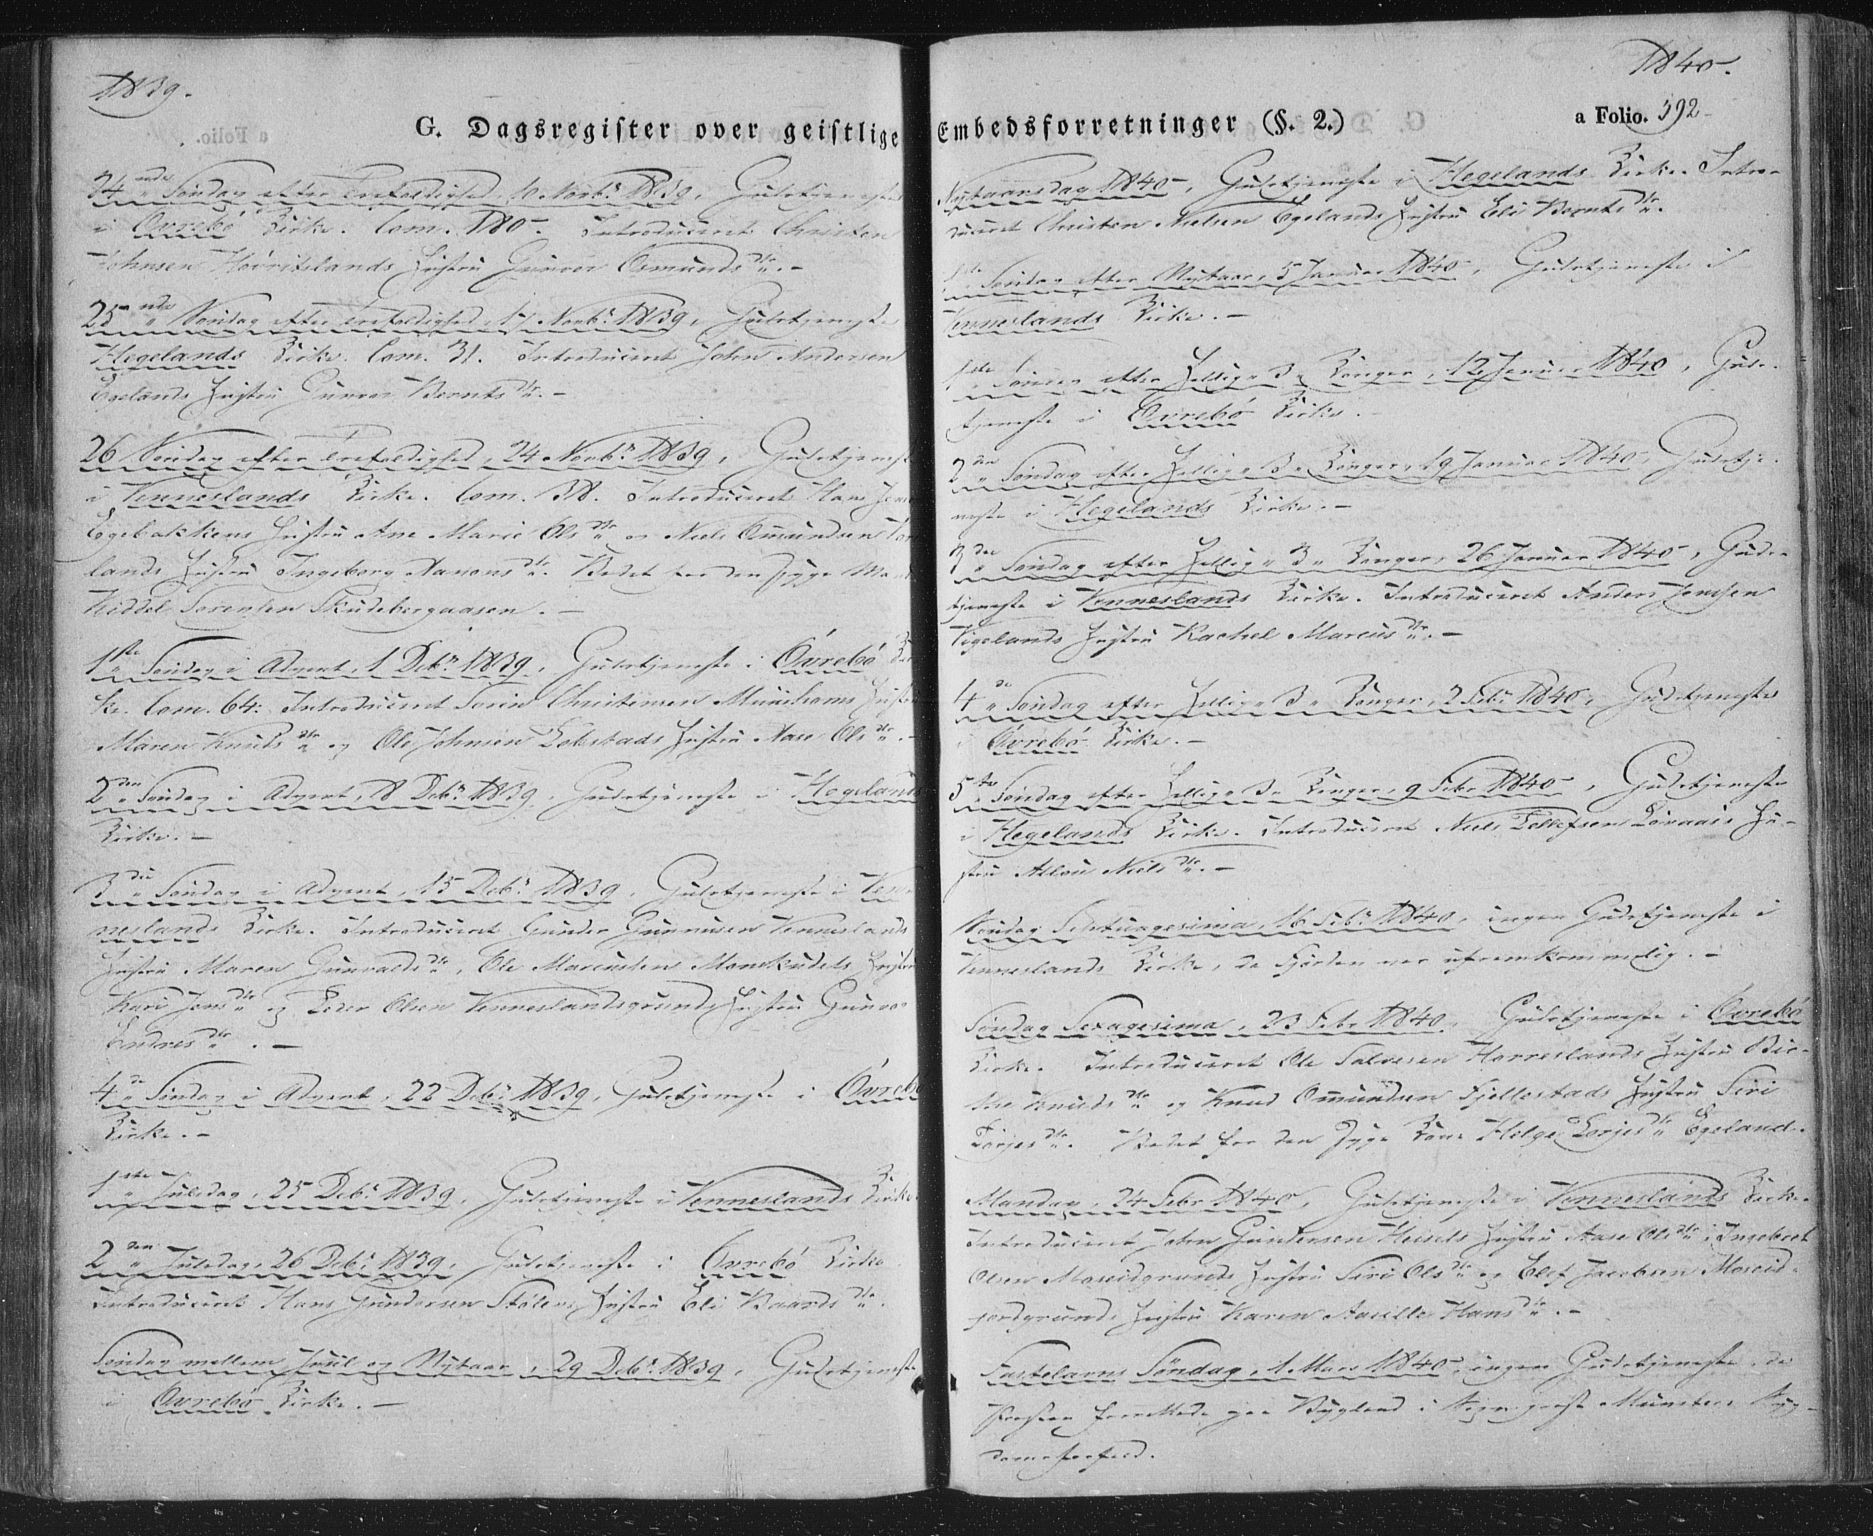 1839.
G. Dagsregister over geistlige
24nde Søndag efter Trefoldighed, 10 Novbr 1839, Gudstjeneste
i Øvrebö Kirke. Com. 180. Introduceret Christen
Johnsen Høiritslands Hustru Gunvor Osmundsdtr. –
25nde Søndag efter Trefoldighed, 17 Novbr 1839, Gudstjeneste
Hegelands Kirke. Com. 31. Introduceret John Andersen
Egelands Hustru Gunvor Berntsdtr. –
26 Søndag efter Trefoldighed, 24 Novbr 1839, Gudstjeneste
i Venneslands Kirke. Com. 38. Introduceret Hans
Egebakkens Hustru Ane Marie Olsdtr og Niels Omundsen
lands Hustru Ingeborg Aanonsdtr. Bedet for den syge
Kiddel Sørensen Skudebergaasen. –
1ste Søndag i Advent, 1 Decbr 1839, Gudstjeneste i Øvrebö Kir-
ke. Com. 64. Introduceret Søren Christensen Hustru
Maren Knudsdtr og Ole Johnsen Hustru Aase Olsdtr. –
2den Søndag i Advent, 8 Decbr 1839, Gudstjeneste i Hegelands
Kirke. –
3die Søndag i Advent, 15 Decbr 1839, Gudstjeneste i Ven-
neslands Kirke. Introduceret Gunder Gunnufsen Venneslands
Hustru Maren Gunvaldsdtr, Ole Marcussen Hustru
Kari Jensdtr og Peder Olsen Venneslandsgrunds Hustru Gunvor
Endresdtr. –
4de Søndag i Advent, 22 Decbr 1839, Gudstjeneste i Øvrebö
Kirke. –
1ste Juledag, 25 Decbr 1839, Gudstjeneste i Venneslands Kirke
2den Juledag, 26 Decbr 1839, Gudstjeneste i Øvrebö Kirke
Introduceret Hans Gundersen Stølens Hustru Eli Baardsdtr.
Søndag mellem Juul og Nytaar, 29 Decbr 1839, Gudstjeneste
i Øvrebö Kirke. –
1840.
Embedsforretninger (§. 2.)
a Folio. 392
Nytaarsdag 1840, Gudstjeneste i Hegelands Kirke. Intro-
duceret Christen Nielsen Egelands Hustru Eli Berntsdtr.
1ste Søndag efter Nytaar, 5 Januar 1840, Gudstjeneste i
Venneslands Kirke. –
1ste Søndag efter Hellig 3 Konger, 12 Januar 1840, Guds-
tjeneste i Øvrebö Kirke.
2den Søndag efter Hellig 3 Konger, 19 Januar 1840, Gudstje-
neste i Hegelands Kirke. –
3die Søndag efter Hellig 3 Konger, 26 Januar 1840, Guds-
tjeneste i Venneslands Kirke. Introduceret Anders Jensen
Vigelands Hustru Rachel Marcusdtr. –
4de Søndag efter Hellig 3 Konger, 2 Febr 1840, Gudstjeneste
i Øvrebö Kirke. –
5te Søndag efter Hellig 3 Konger, 9 Febr 1840, Gudstjeneste
i Hegelands Kirke. Introduceret Niels Tellefsen Hu-
stru Nielsdtr. –
Søndag Septuagesima, 16 Febr 1840, ingen Gudstjeneste i
Venneslands Kirke, da Fjorden var ufremkommelig. –
Søndag Sexagesima, 23 Febr 1840, Gudstjeneste i Øvrebö
Kirke. Introduceret Ole Salvesen Horreslands Hustru Bir-
the Knudsdtr og Knud Omundsen Fjellestads Hustru Siri
Torjesdtr. Bedet for den syge Kone Helge Torjesdtr Egeland.
Mandag, 24 Febr 1840, Gudstjeneste i Venneslands Kirke.
Introduceret John Gundersen Heisels Hustru Aase Olsdtr, Ingebret
Olsen Moseidgrunds Hustru Siri Olsdtr og Elef Jacobsen Moseid-
jordgrunds Hustru Karen Hansdtr. –
Fastelavns Søndag, 1 Mars 1840, ingen Gudstjeneste, da
Præsten forrettede paa Bygland i Sognepræst Münsters Syg-
domsforfald.